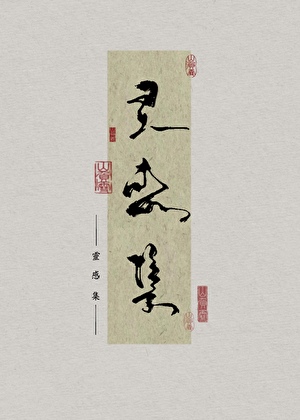 灵感集
靈感集